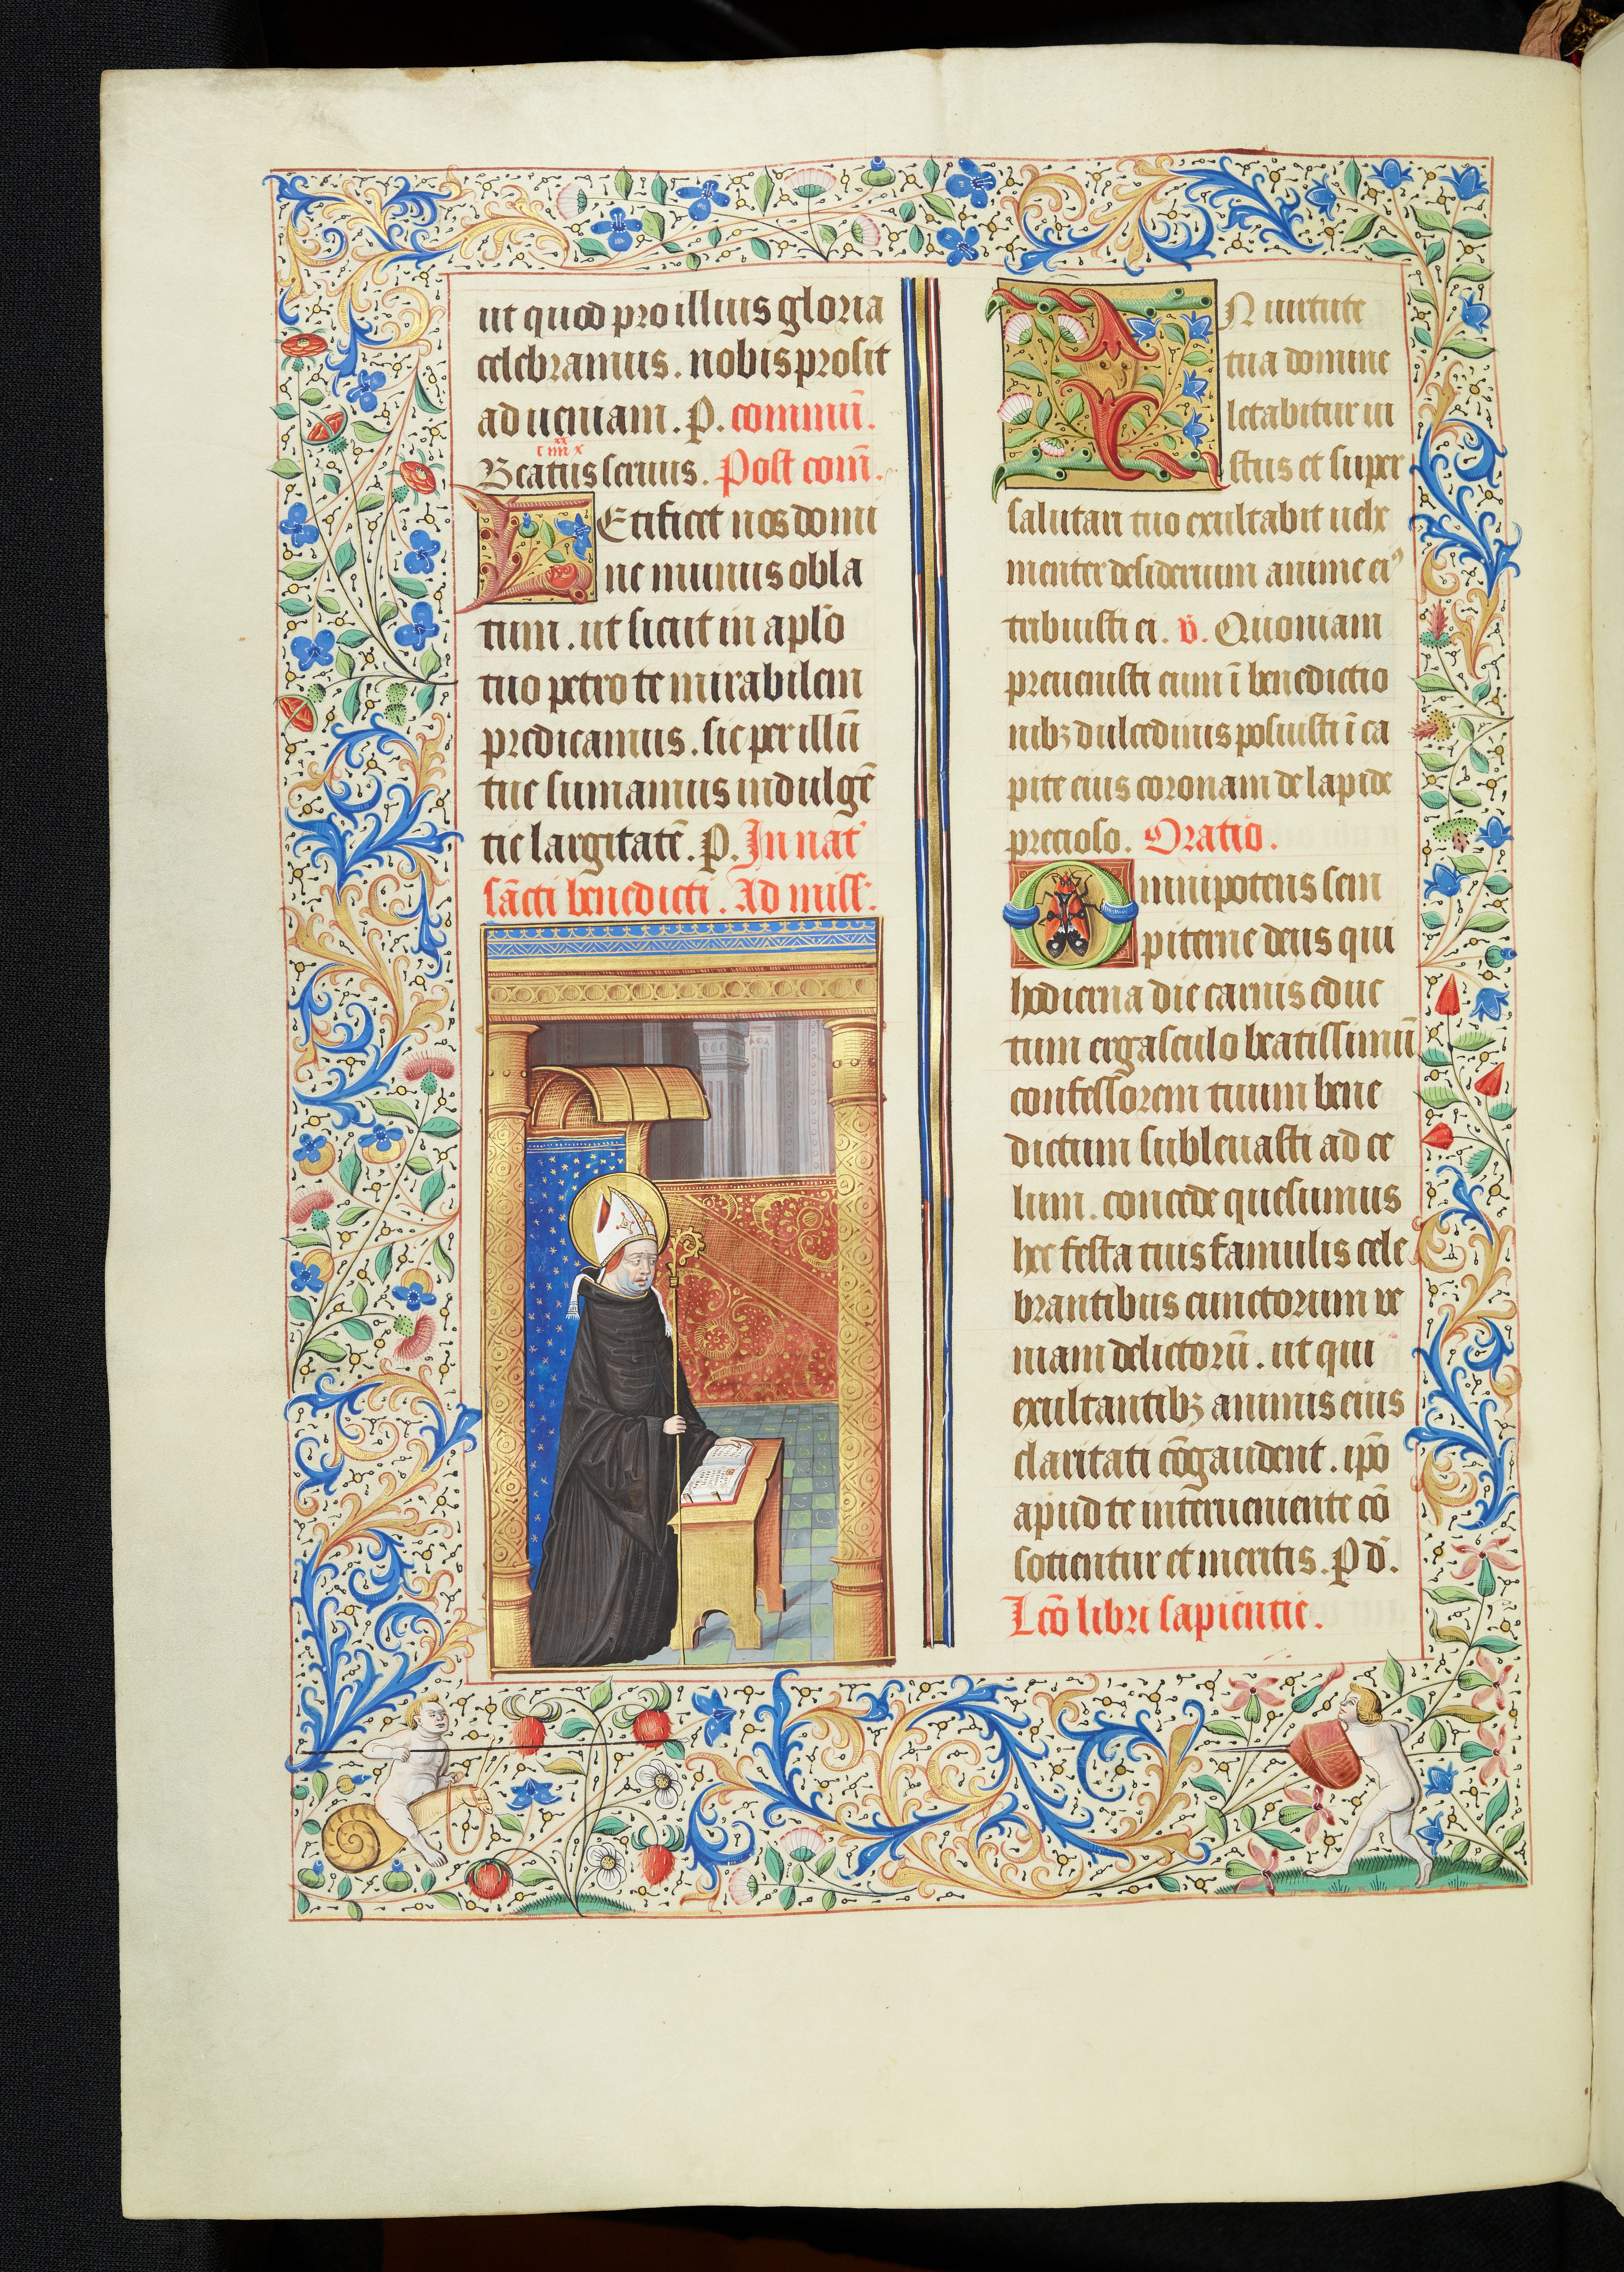 ut quod pro illius gloria
celebramus. nobis prosit
ad ueniam. P. commũ.
c iiii xx x
Beatus seruus. Post com̃.
LEtificet nos domi
ne munus obla
tum. ut sicut in aplo̅
tuo petro te mirabilem
predicamus. sic per illũ
tue sumamus indulgẽ
tie largitatẽ. P. In nat̃
sãcti benedicti. Ad miss̃.
IN uirtute
tua domine
letabitur iu
stus et super
salutari tuo exultabit uehe
menter desiderium anime ei⁹
tribuisti ei. v̄. Quoniam
preuenisti eum ĩ benedictio
nibꝫ dulcedinis posuisti ĩ ca
pite eius coronam de lapide
precioso. Oratio.
Omnipotens sem
piterne deus qui
hodierna die carnis educ
tum ergasculo beatissimũ
confessorem tuum bene
dictum subleuasti ad ce
lum. concede quesumus
hec festa tuis famulis cele
brantibus cunctorum ue
niam delictorũ. ut qui
exultantibꝫ animis eius
claritati cõgaudent. ip̃o
apud te interueniente cõ
sotientur et meritis. P d̄.
Lcõ libri sapientie.